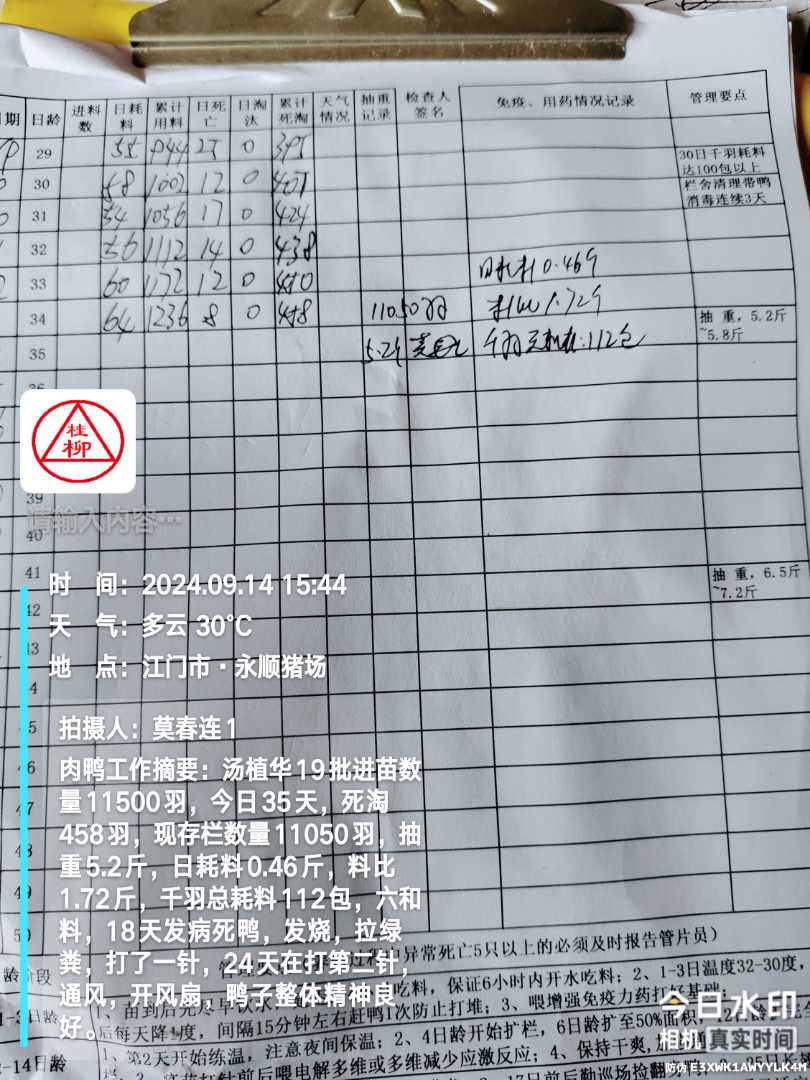 期 日龄 进料数 日耗料 累计用料 日死亡 日淘汰 累计死淘 天气情况 抽重记录 检查人签名 免疫、用药情况记录 管理要点
29 55 944 25 0 395
30日千羽耗料
达100包以上
30 58 1002 12 0 407
栏舍清理带鸭
消毒连续3天
31 54 1056 17 0 424
32 56 1112 14 0 438
33 60 1172 12 0 450 日耗料0.46斤
34 64 1236 8 0 458 11050羽 料比1.72斤
抽 重，5.2斤
~5.8斤
35 5.2斤 莫春连 千羽总耗料:112包
桂
柳
39
请输入内容…
40
41
抽 重，6.5斤
~7.2斤
42
时 间：2024.09.14 15:44
天 气：多云 30°C
地 点：江门市·永顺猪场
拍摄人：莫春连1
肉鸭工作摘要：汤植华19批进苗数
量11500羽，今日35天，死淘
458羽，现存栏数量11050羽，抽
重5.2斤，日耗料0.46斤，料比
1.72斤，千羽总耗料112包，六和
料，18天发病死鸭，发烧，拉绿
粪，打了一针，24天在打第二针，
通风，开风扇，鸭子整体精神良
好。
异常死亡5只以上的必须及时报告管片员）
龄阶段
1-3日龄
1、苗到后先尽早饮水 吃料，保证6小时内开水吃料；2、1-3日温度32-30度，
后每天降1度，间隔15分钟左右赶鸭1次防止打堆；3、喂增强免疫力药打好基础；
2-14日龄
1、第2天开始练温，注意夜间保温；2、4日龄开始扩栏，6日龄扩至50%面积，
打针前后喂电解多维或多维减少应激反应；4、保持干爽，
17日前后勤巡场捡翻
今日水印
相机 真实时间
防伪 E3XWK1AWYYLK4N